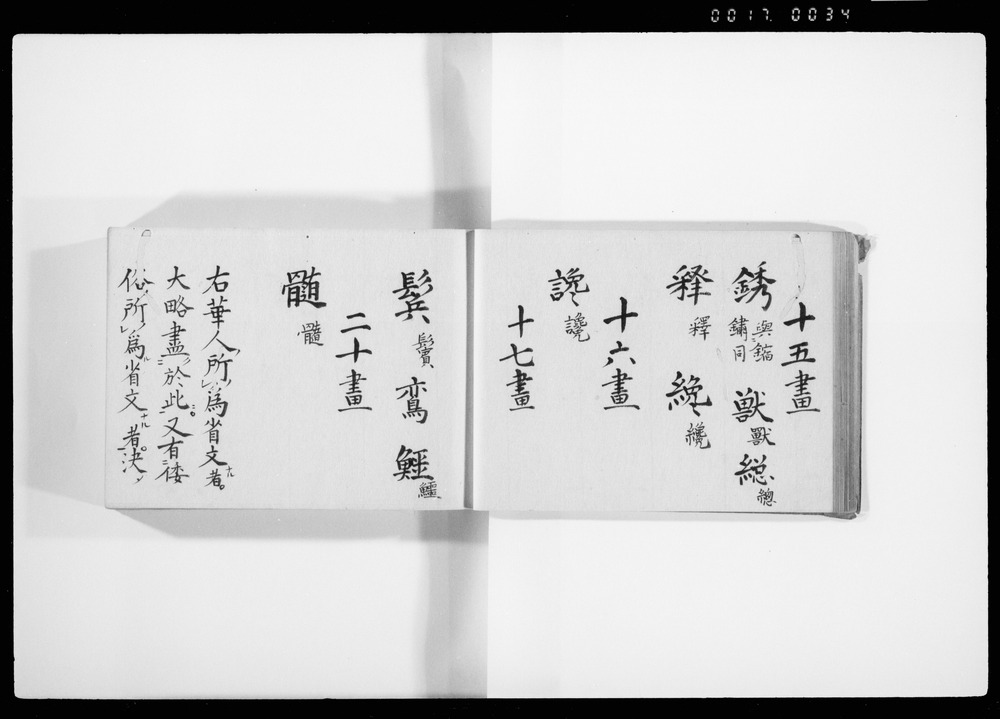 0017 0034
十五畫
銹 與鏥鏽同 獣 獸 総 總
釈 釋 纔 纔
十六畫
讒 讒
十七畫
鬂 鬢 鸾 鱷
二十畫
髄 髓
右華人所爲省文者。
大略盡於此。又有倭
俗所爲省文者。決